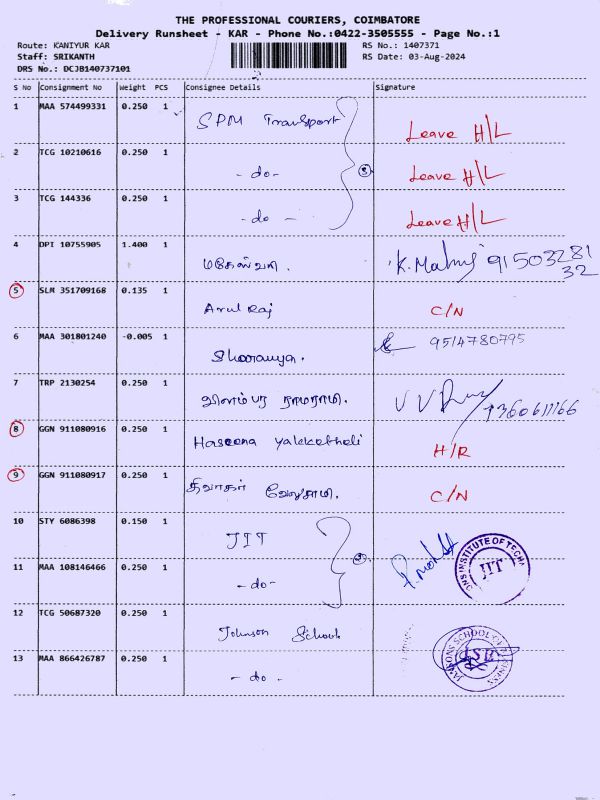 THE PROFESSIONAL COURIERS, COIMBATORE
Delivery Runsheet - KAR - Phone No.:0422-3505555 - Page No.:1
Route: KANIYUR KAR RS No.: 1407371
Staff: SRIKANTH RS Date: 03-Aug-2024
DRS No.: DCJB140737101
S No Consignment No Weight PCS Consignee Details Signature
1 MAA 574499331 0.250 1 SPM Transport Leave H/L
2 TCG 10210616 0.250 1 - do - Leave H/L
3 TCG 144336 0.250 1 - do - Leave H/L
4 DPI 10755905 1.400 1 மகேஸ்வரி. 91503281
32
5 SLM 351709168 0.135 1 Arul Raj C/N
6 MAA 301801240 -0.005 1 Sharanya. 9514780795
7 TRP 2130254 0.250 1
8 GGN 911080916 0.250 1 Haseena H/R
9 GGN 911080917 0.250 1 திவாகர் வேலுசாமி. C/N
10 STY 6086398 0.150 1 JIT
11 MAA 108146466 0.250 1 - do - INSTITUTE OF TECH JIT
12 TCG 50687320 0.250 1 Johnson School
13 MAA 866426787 0.250 1 - do - JANSONS SCHOOL OF BUSINESS JSB